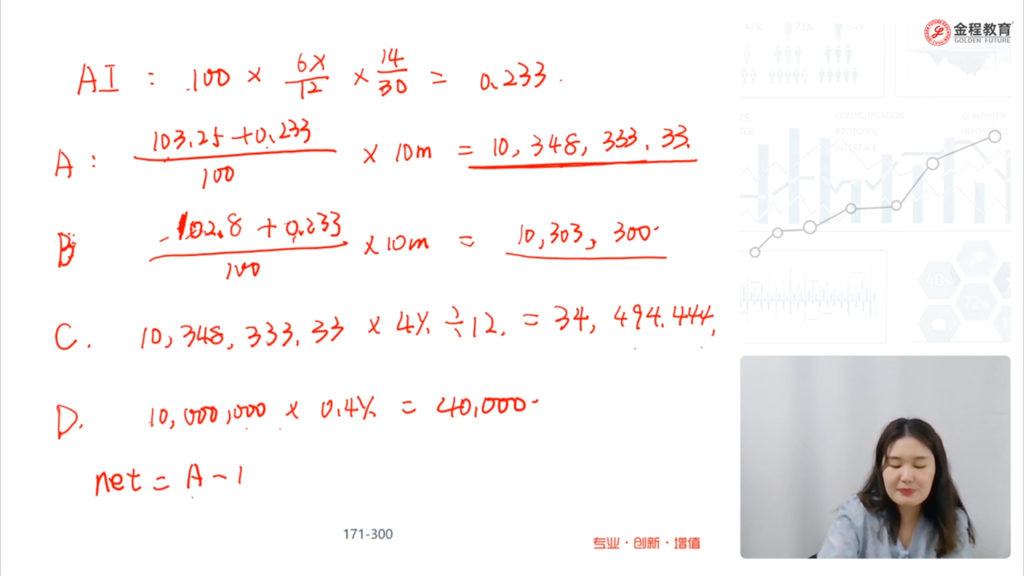 金程教育
GOLDEN FUTURE
AI : 100 × 6% / 12 × 14 / 30 = 0.233.
A : 103.25 + 0.233 / 100 × 10m = 10,348,333.33.
B 102.8 + 0.233 / 100 × 10m = 10,303,300.
C. 10,348,333.33 × 4% ÷ 12. = 34,494.444,
D. 10,000,000 × 0.4% = 40,000.
net = A - 1
COMMUNICATION
PROTOCOL
INTERFACE
171-300
专业·创新·增值